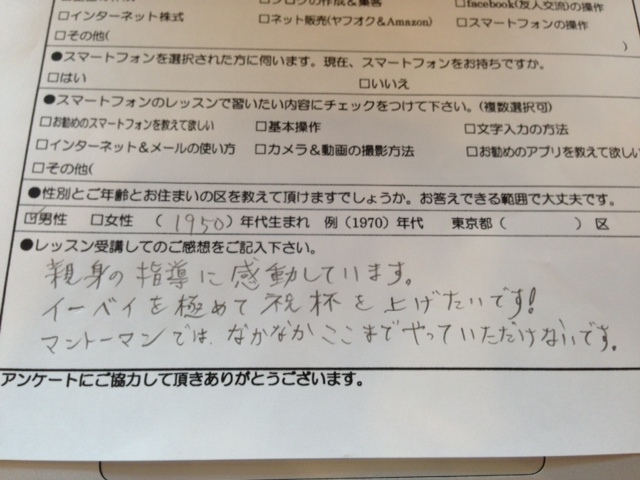 □ブログの作成&集客
□facebook(友人交流)の操作
□インターネット株式 □ネット販売(ヤフオク&Amazon) □スマートフォンの操作
□その他( )
●スマートフォンを選択された方に伺います。現在、スマートフォンをお持ちですか。
□はい □いいえ
●スマートフォンのレッスンで習いたい内容にチェックをつけて下さい。(複数選択可)
□お勧めのスマートフォンを教えて欲しい □基本操作 □文字入力の方法
□インターネット&メールの使い方 □カメラ&動画の撮影方法 □お勧めのアプリを教えて欲しい
□その他(
●性別とご年齢とお住まいの区を教えて頂けますでしょうか。お答えできる範囲で大丈夫です。
☑男性 □女性 (1950)年代生まれ 例(1970)年代 東京都( )区
●レッスン受講してのご感想をご記入下さい。
親身の指導に感動しています。
イーベイを極めて祝杯を上げたいです!
マントーマンでは、なかなかここまでやっていただけないです。
アンケートにご協力して頂きありがとうございます。